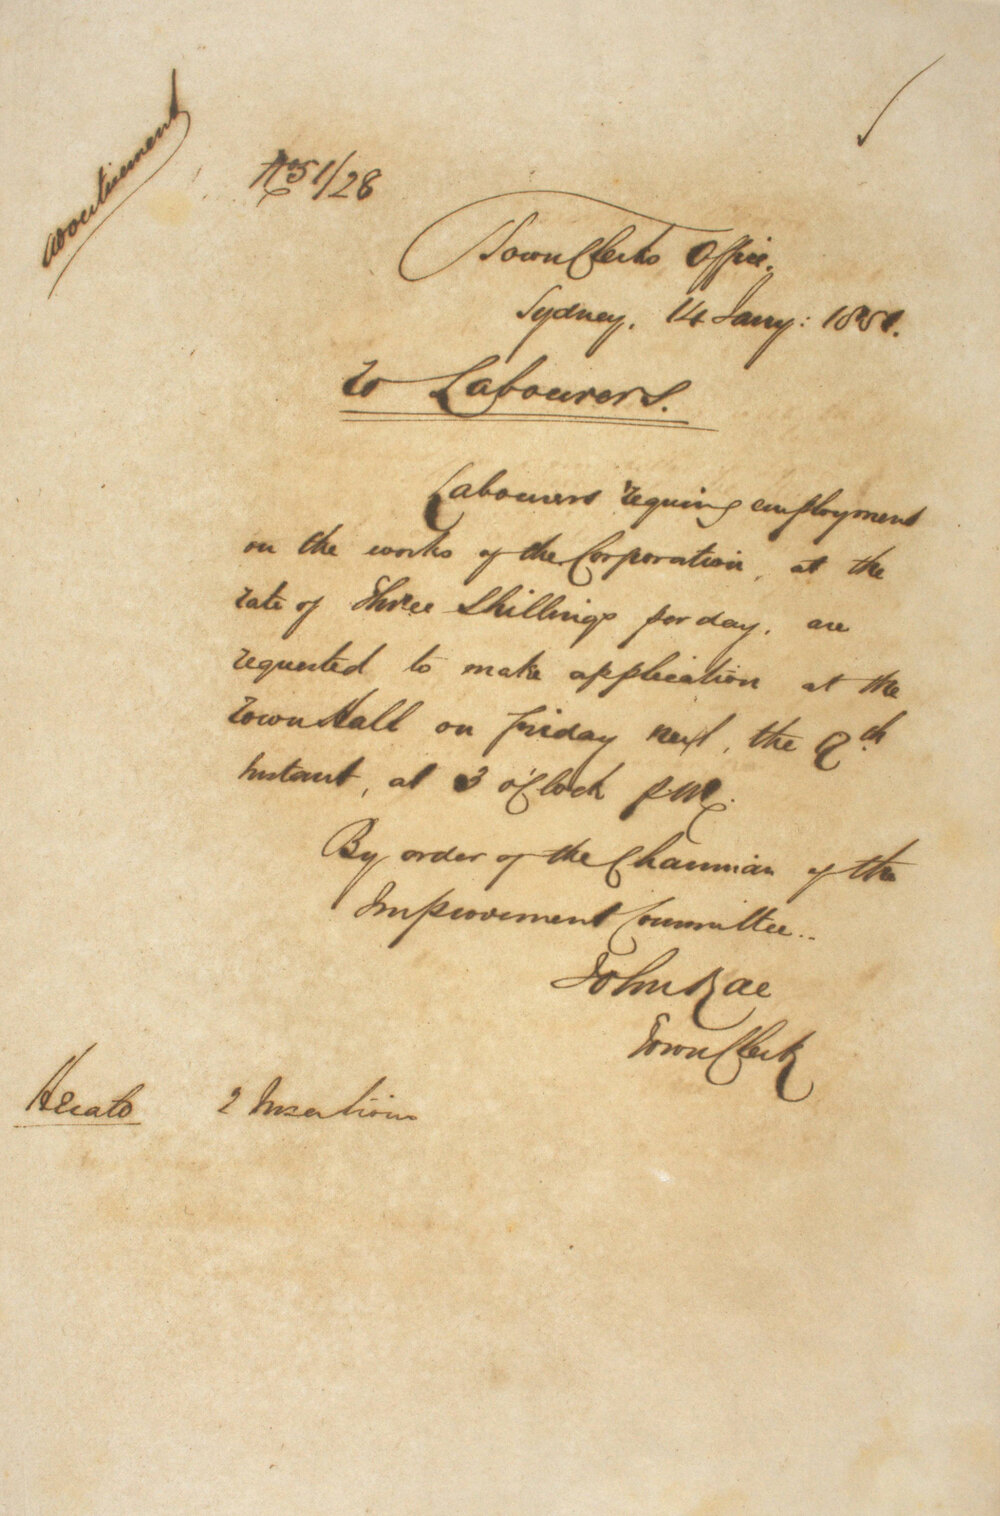 Advertisement
No 51/28
Town Clerks Office.
Sydney. 14 Jany: 1851.
To Labourers.
Labourers requiring employment
on the works of the Corporation, at the
rate of Three Shillings per day, are
requested to make application at the
Town Hall on Friday next, the 17th
Instant, at 3 o'Clock p.m.
By order of the Chairman of the
Improvement Committee..
John Rae
Town Clerk
Herald 2 Insertions